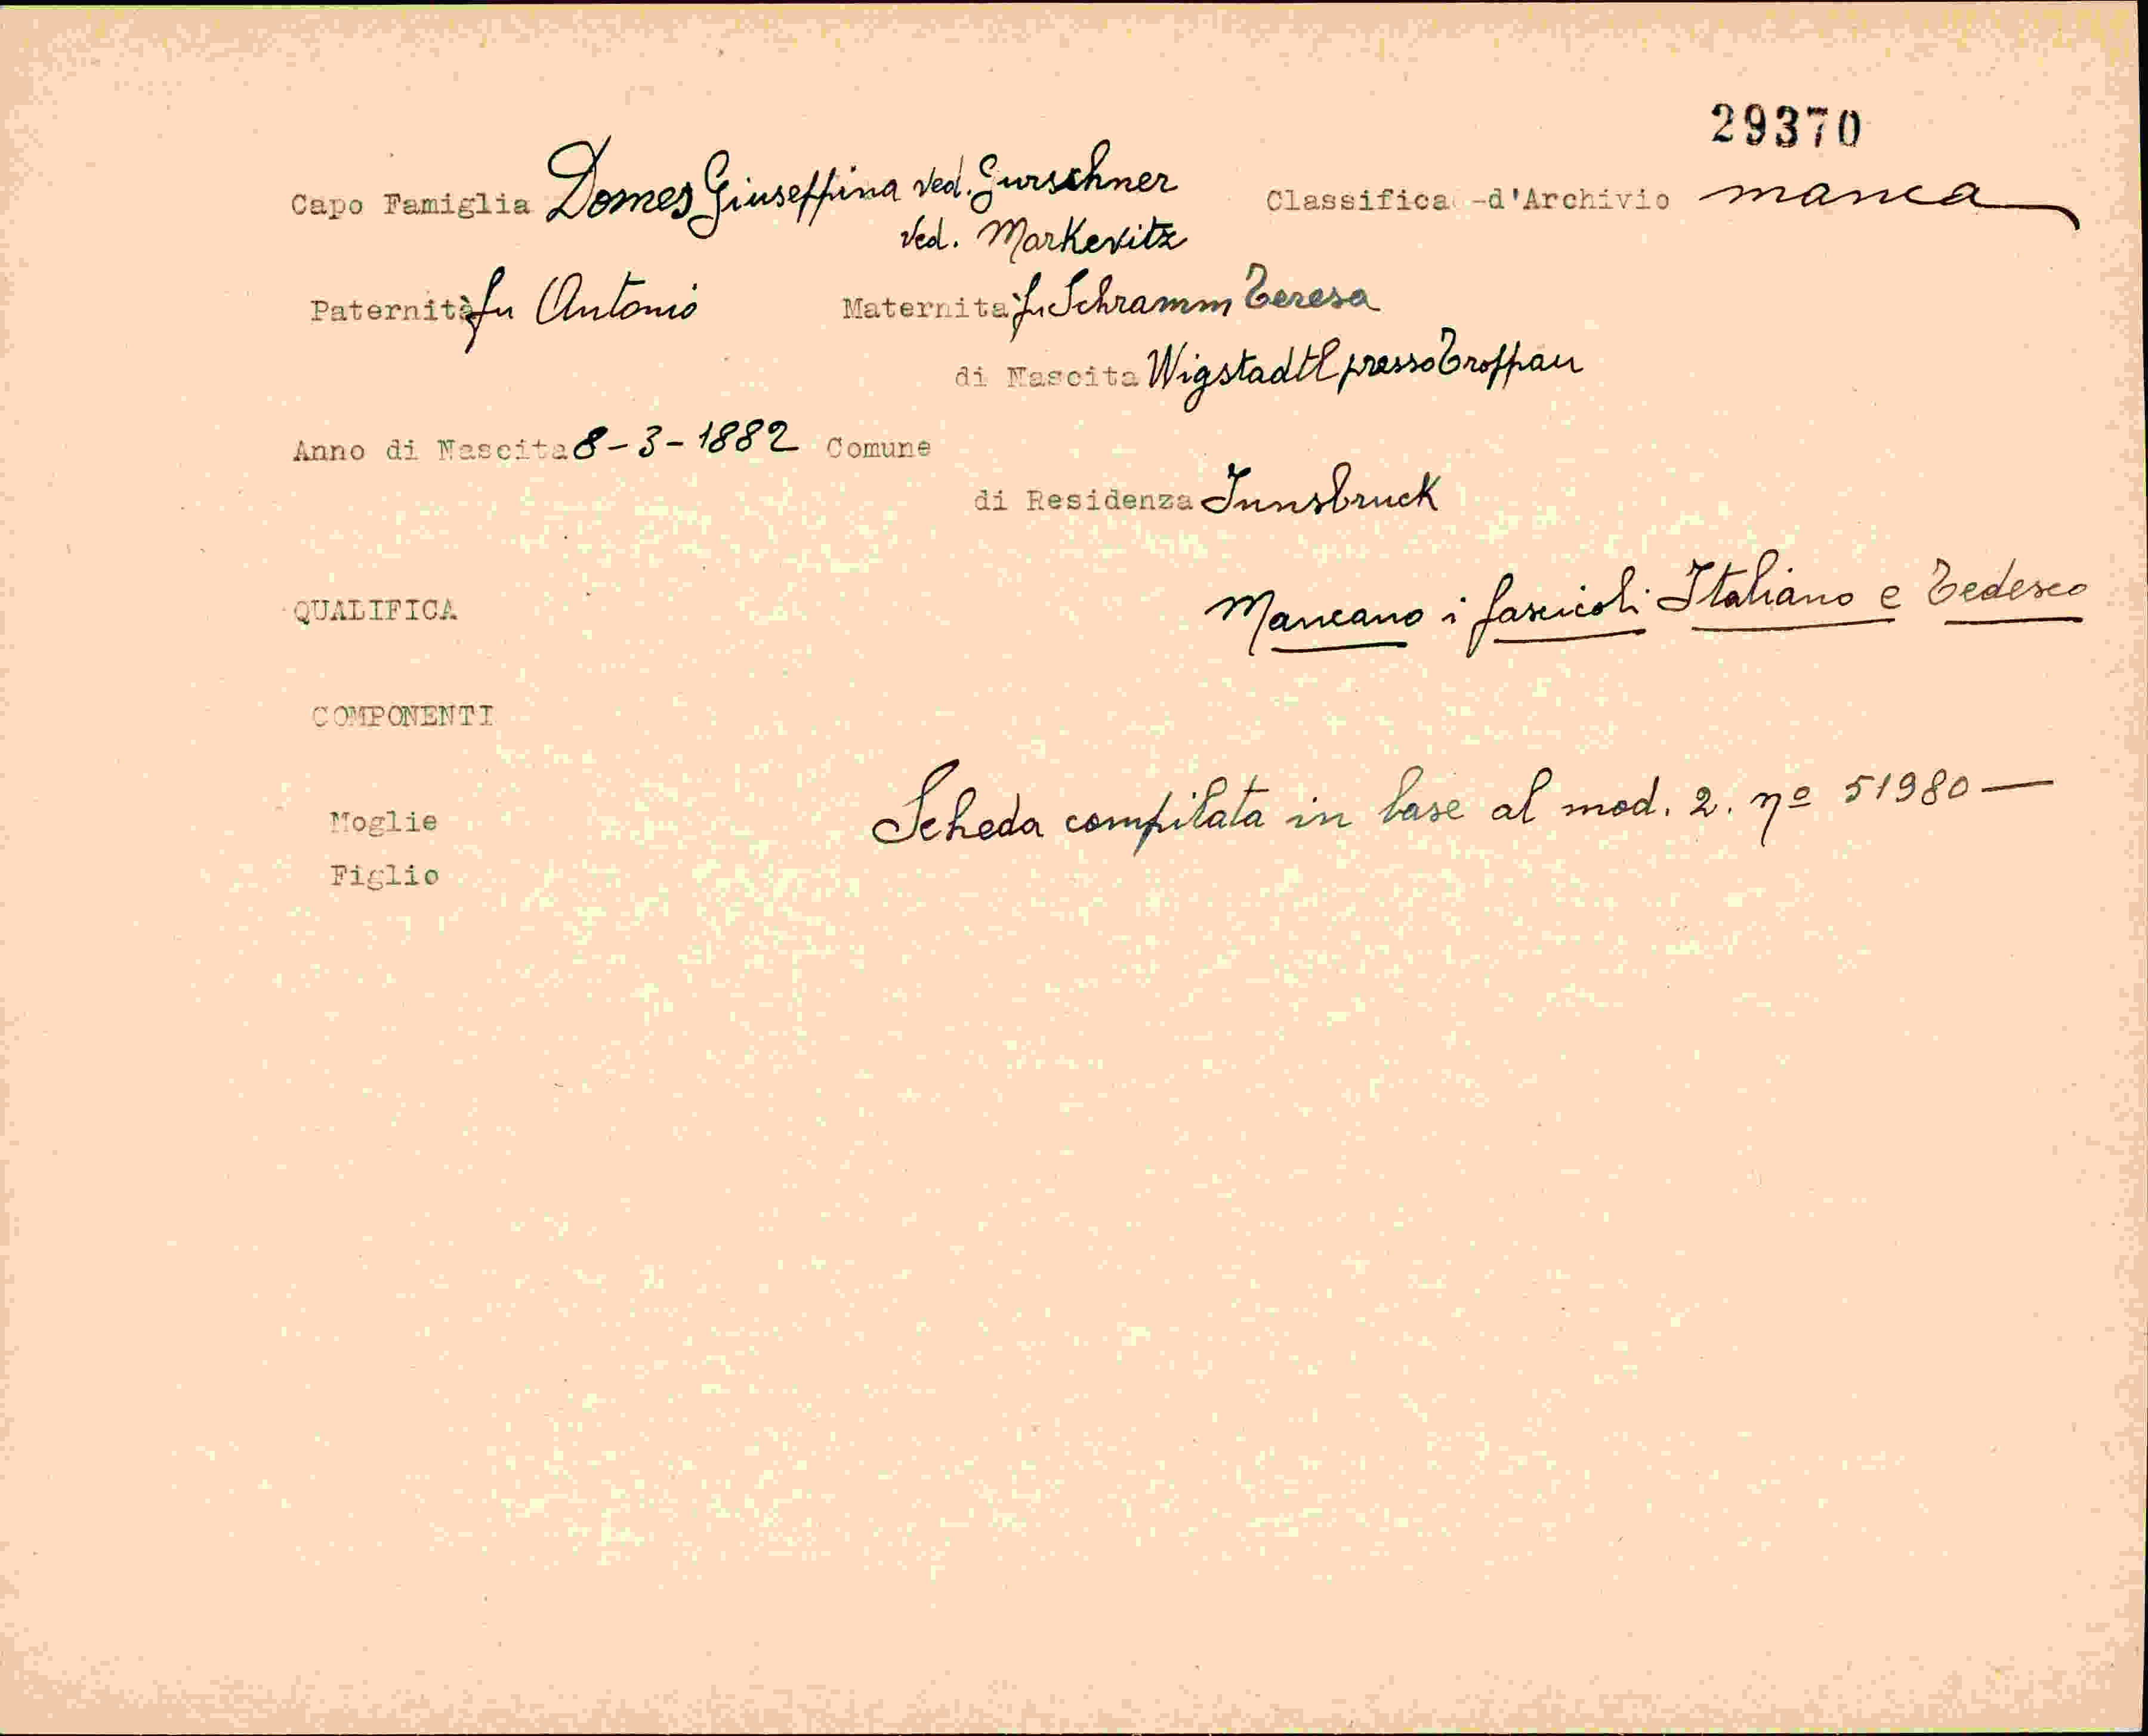 29370
Capo Famiglia Domes Giuseppina ved. Gurschner Classifica -d'Archivio manca
ved. Markevitz
Paternità fu Antonio Maternità fu Schramm Teresa
di Nascita Wigstadtl presso Troppau
Anno di Nascita 8-3-1882 Comune
di Residenza Innsbruck
QUALIFICA Mancano i fascicoli Italiano e Tedesco
COMPONENTI
Moglie Scheda compilata in base al mod. 2. nº 51980 —
Figlio